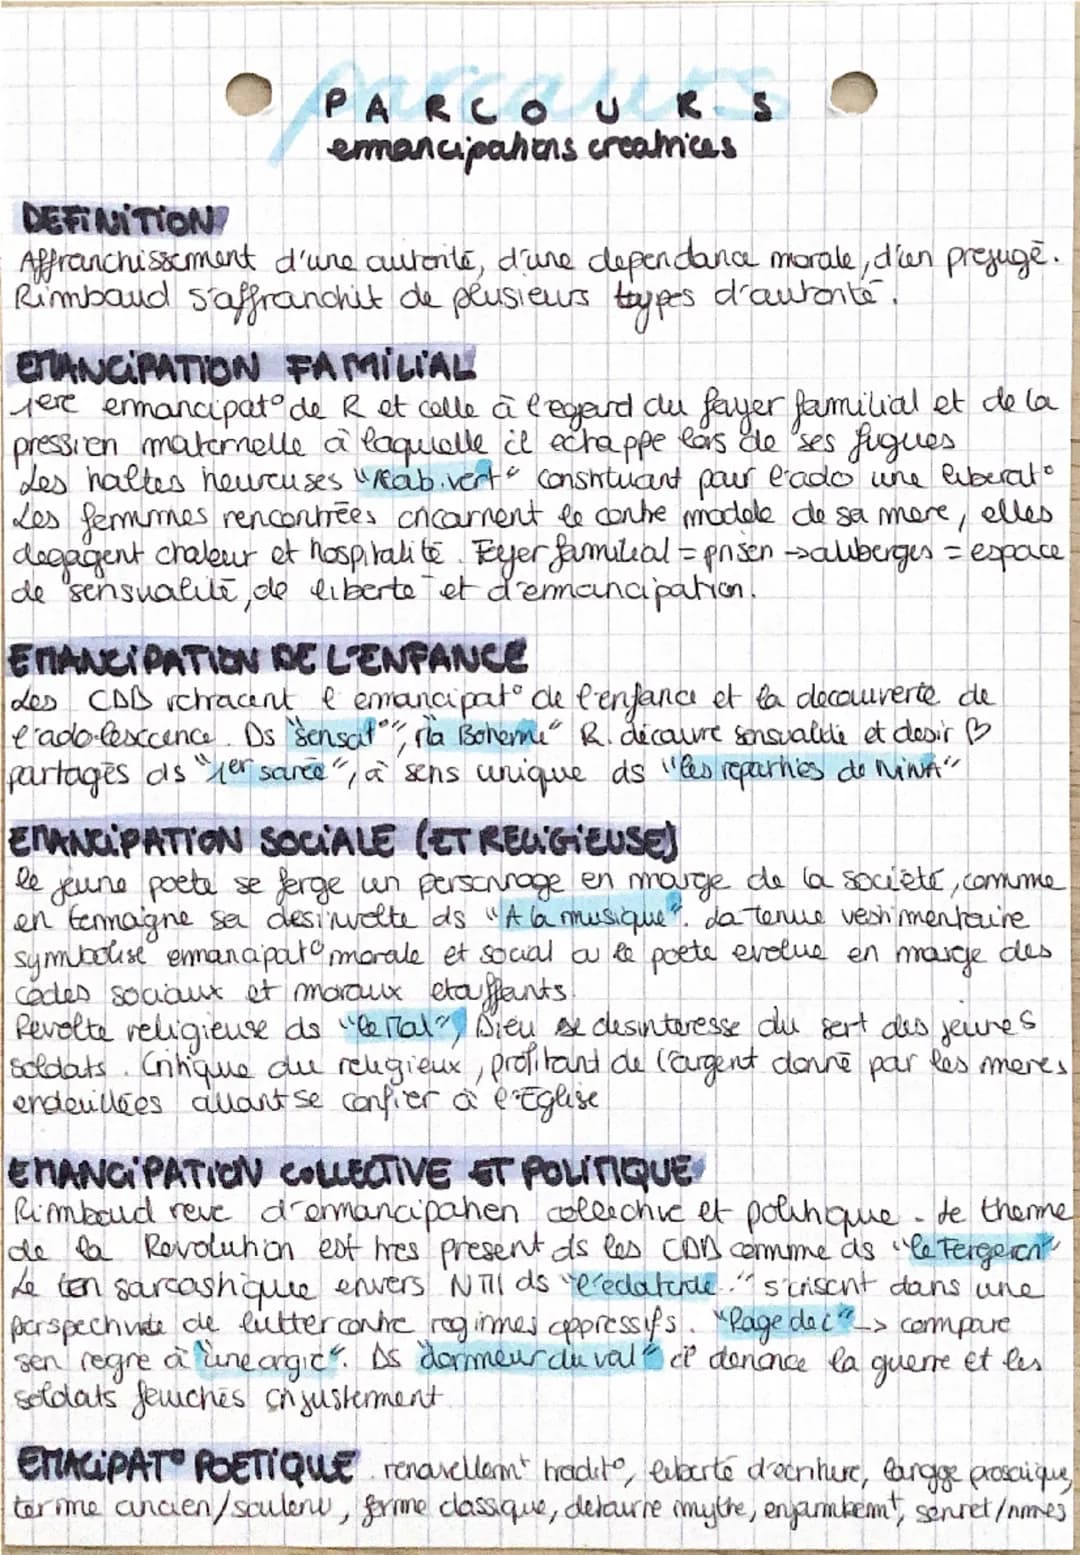 parcours
PARCOURS
emancipations creatrices
DEFINITION
Affranchissement d'une autorité, d'une dependance morale, d'un prejugé.
Rimbaud s'affranchit de plusieurs types d'autorité.
EMANCIPATION FAMILIAL
1ere emancipat° de R et celle à l'egard du foyer familial et de la
pression maternelle à laquelle il echappe lors de ses fugues
Les haltes heureuses "cab.vert" constituant pour l'ado une liberat°
Les femmes rencontrées incarnent le contre modele de sa mere, elles
degagent chaleur et hospitalité. Foyer familial = prison -> auberges = espace
de sensualité, de liberté et d'emancipation.
EMANCIPATION DE L'ENFANCE
Les CDD retracent l'emancipat° de l'enfance et la decouverte de
l'adolescence. Ds "sensat°", "la Boheme" R. découvre sensualité et desir ♡
partagés ds "1er soirée", à sens unique ds "les reparties de NINA"
EMANCIPATION SOCIALE (ET RELIGIEUSE)
le jeune poete se forge un personnage en marge de la société, comme
en temoigne sa desinvolte ds "A la musique". La tenue vestimentaire
symbolise emancipat° morale et social où le poete evolue en marge des
codes sociaux et moraux etouffants.
Revolte religieuse ds "le Mal", Dieu se desinteresse du sort des jeunes
soldats. Critique du religieux, profitant de l'argent donné par les meres
endeuillées allant se confier à l'Eglise
EMANCIPATION COLLECTIVE ET POLITIQUE
Rimbaud reve d'emancipation collective et politique. Le theme
de la Revolution est tres present ds les CDD comme ds "le Forgeron"
Le ton sarcastique envers NIII ds "l'eclatante.." s'inscrit dans une
perspective de lutter contre regimes oppressifs. "Rage de C" -> compare
son regne à "une orgie". Ds "dormeur du val" il denonce la guerre et les
soldats fauchés injustement
EMACIPAT° POETIQUE renouvellemt tradit°, liberté d'ecriture, langge prosaique,
terme ancien/soutenu, forme classique, detourne mythe, enjambemt, sonnet/rimes